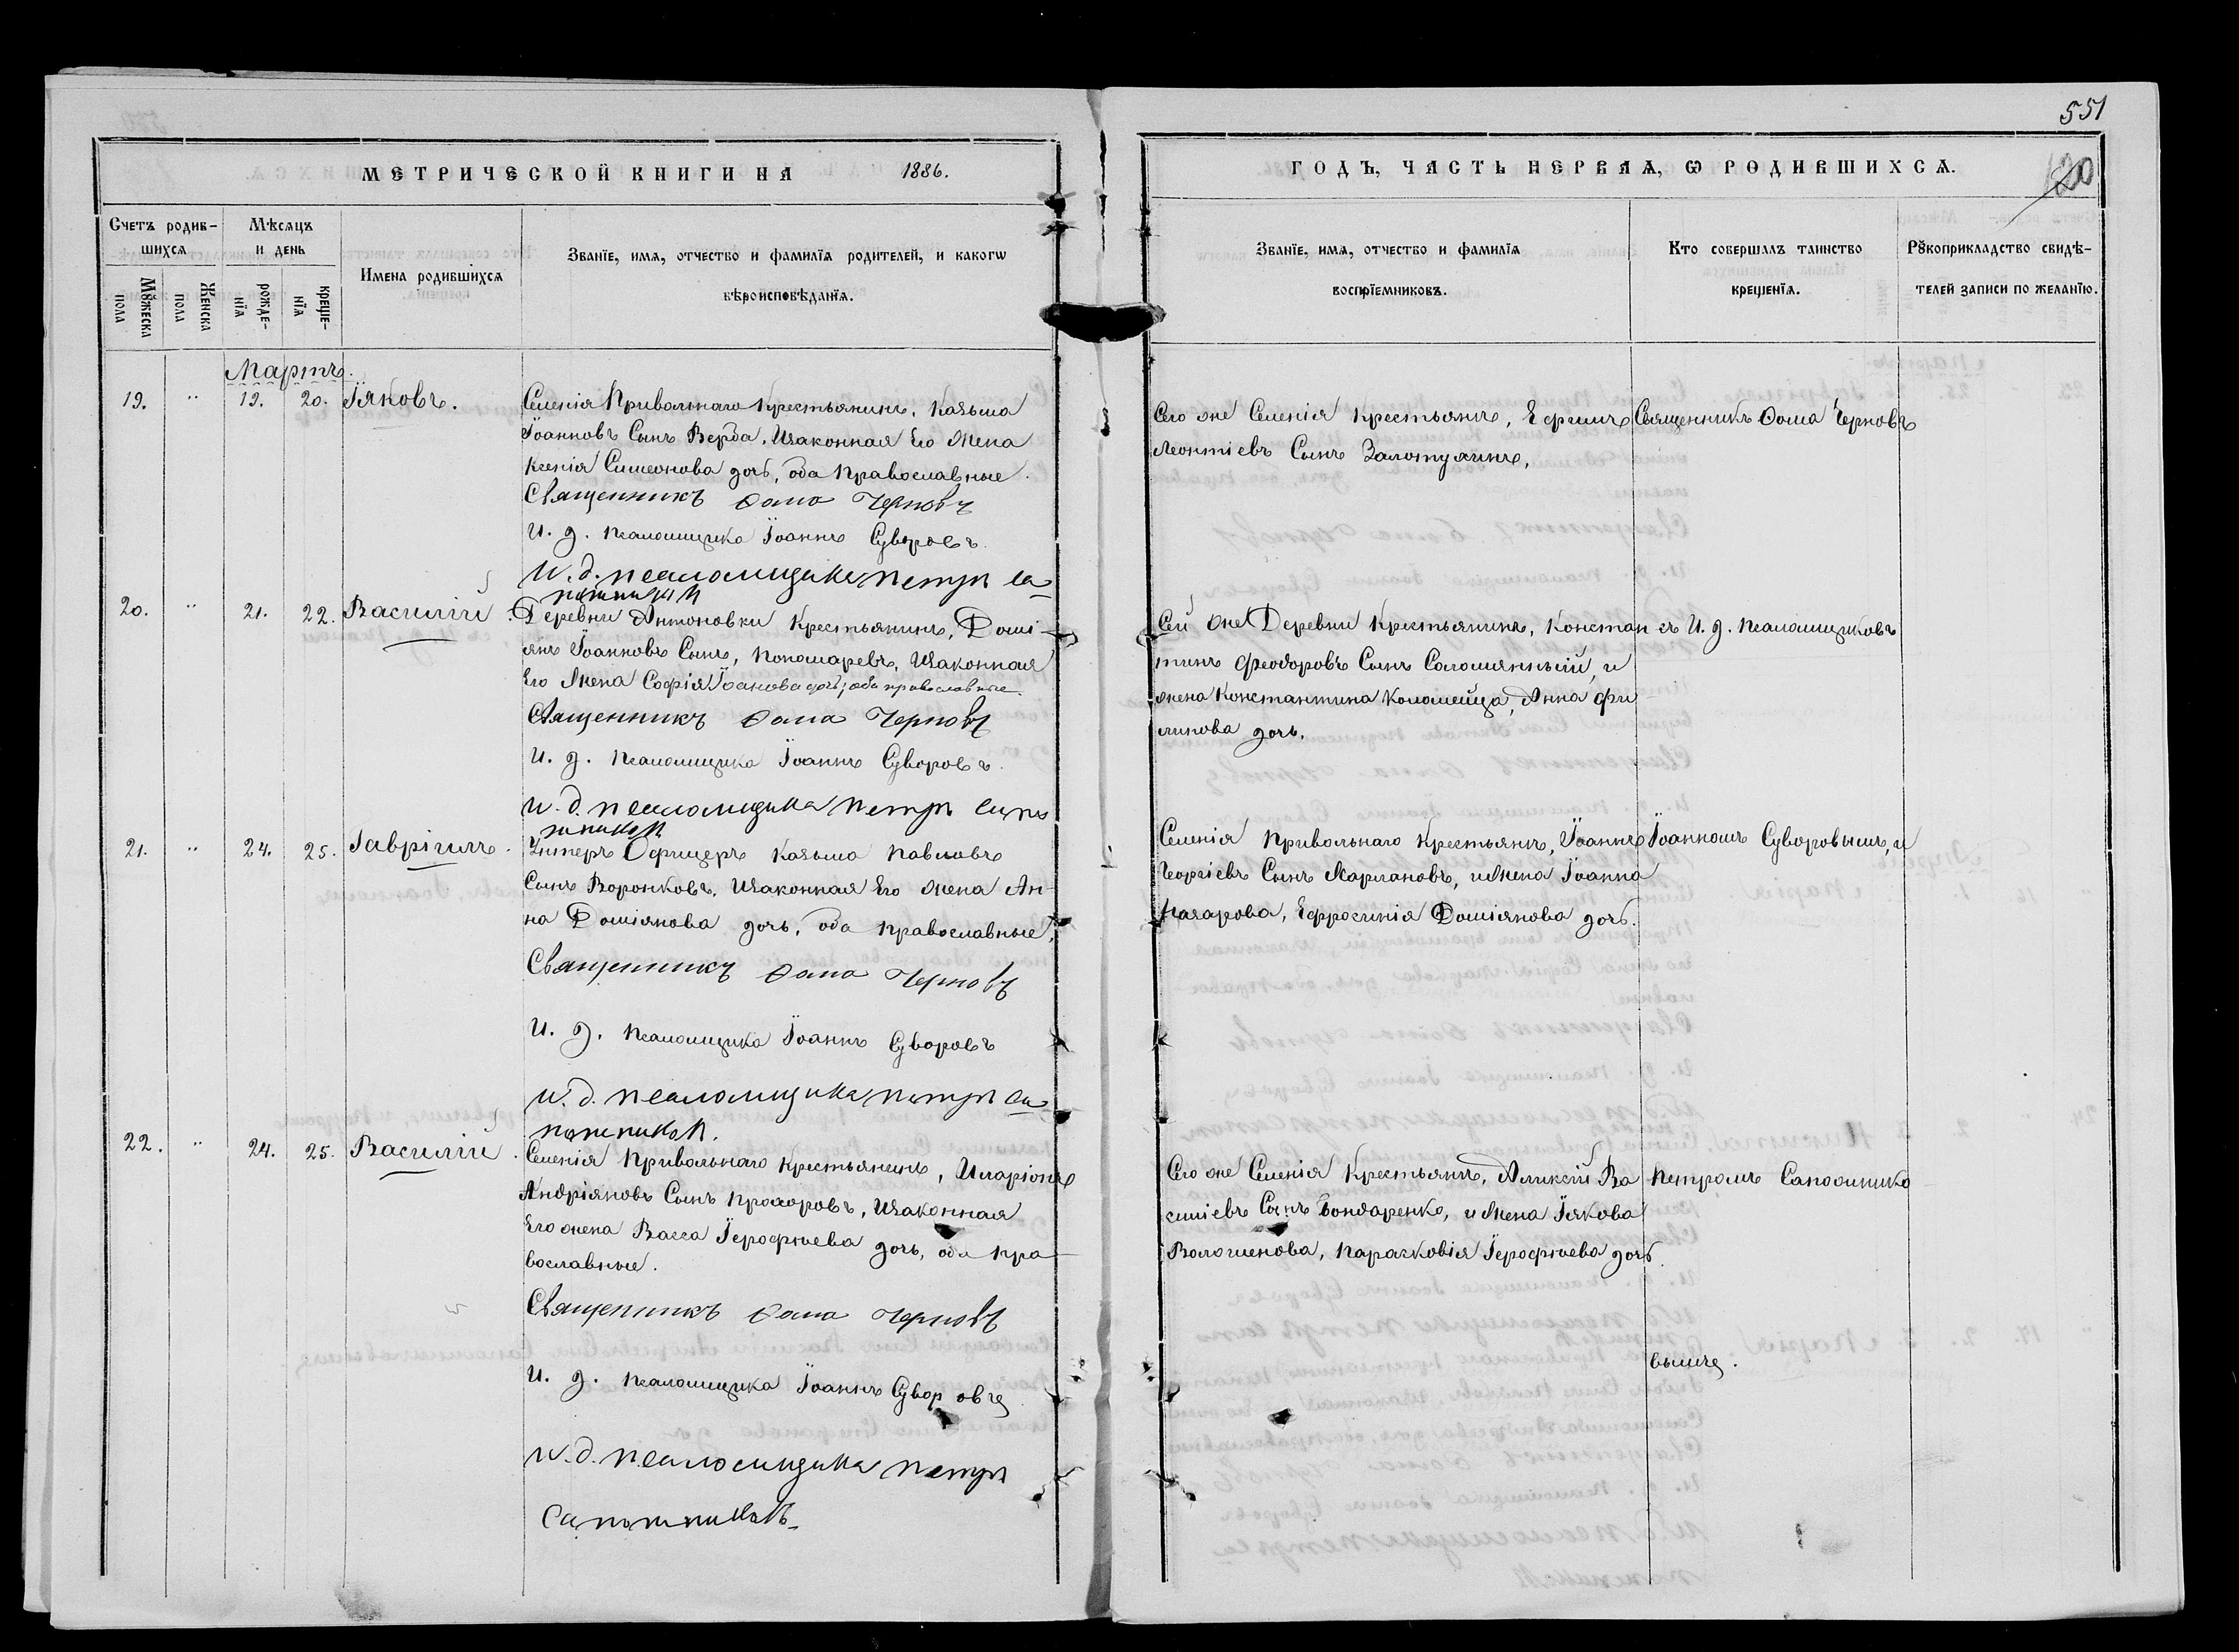 551
МЕТРИЧЕСКОЙ КНИГИ НА 1886.
ГОДЪ, ЧАСТЬ ПЕРВАѦ, Ѡ РОДИВШИХСѦ.
120
Счетъ родив-
шихсѧ
Мѣсѧцъ
и день
Мꙋжеска
пола
Женска
пола
рожде-
нїѧ
креще-
нїѧ
Имена родившихсѧ
Званїе, имѧ, отчество и фамилїѧ родителей, и какогѡ
вѣроисповѣданїѧ.
Званїе, имѧ, отчество и фамилїѧ
воспрїемниковъ.
Кто совершалъ таинство
крещенїѧ.
Рꙋкоприкладство свидѣ-
телей записи по желанїю.
Мартъ.
19. " 19. 20. Іяковъ.
Селенія Привольнаго Крестьянинъ, Казьма
Іоанновъ Сынъ Верба, Изаконная Его Жена
Ксенія Симеонова дочь, оба Православные.
Священникъ Ѳома Черновъ
И. д. Псаломщика Іоаннъ Суворовъ.
И. д. псаломщика Петръ Са-
пожниковъ
Сего же Селенія Крестьянъ, Ефимъ
Леонтіевъ Сынъ Залотухинъ,
Священникъ Ѳома Черновъ
20. " 21. 22. Василій.
Деревни Антоновки Крестьянинъ, Доми-
янъ Іоанновъ Сынъ, Пономаревъ, Изаконная
Его Жена Софія Іоанова дочь, оба православные.
Священникъ Ѳома Черновъ
И. д. Псаломщика Іоаннъ Суворовъ.
И. д. псаломщика Петръ Сапо
жниковъ
Сей же Деревни Крестьянинъ, Констан
тинъ Феодоровъ Сынъ Саломянный, и
жена Константина Коломейца, Анна Фи
липова дочь.
съ И. д. Псаломщиковъ
21. " 24. 25. Гавріилъ.
Унтеръ Офицеръ Казьма Павловъ
Сынъ Воронковъ, Изаконная Его жена Ан-
на Доміянова дочь, оба православные,
Священникъ Ѳома Черновъ
И. д. Псаломщика Іоаннъ Суворовъ
И. д. псаломщика Петръ Са
пожниковъ.
Селенія Привольнаго Крестьянъ, Іоаннъ
Георгіевъ Сынъ Харлановъ, и Жена Іоанна
Назарова, Ефросинія Доміянова дочь.
Іоанномъ Суворовымъ, и
22. " 24. 25. Василій.
Селенія Привольнаго Крестьянинъ, Иларіонъ
Андріяновъ Сынъ Прохоровъ, Изаконная
Его жена Васса Іерофѣева дочь, оба пра-
вославные.
Священникъ Ѳома Черновъ
И. д. Псаломщика Іоаннъ Суворовъ
И. д. псаломщика Петръ
Сапожниковъ.
Сего же Селенія Крестьянъ, Алексій Ва
силіевъ Сынъ Бондаренко, и Жена Іякова
Волошенова, Парасковія Іерофѣева дочь.
Петромъ Сапожнико
вымъ.